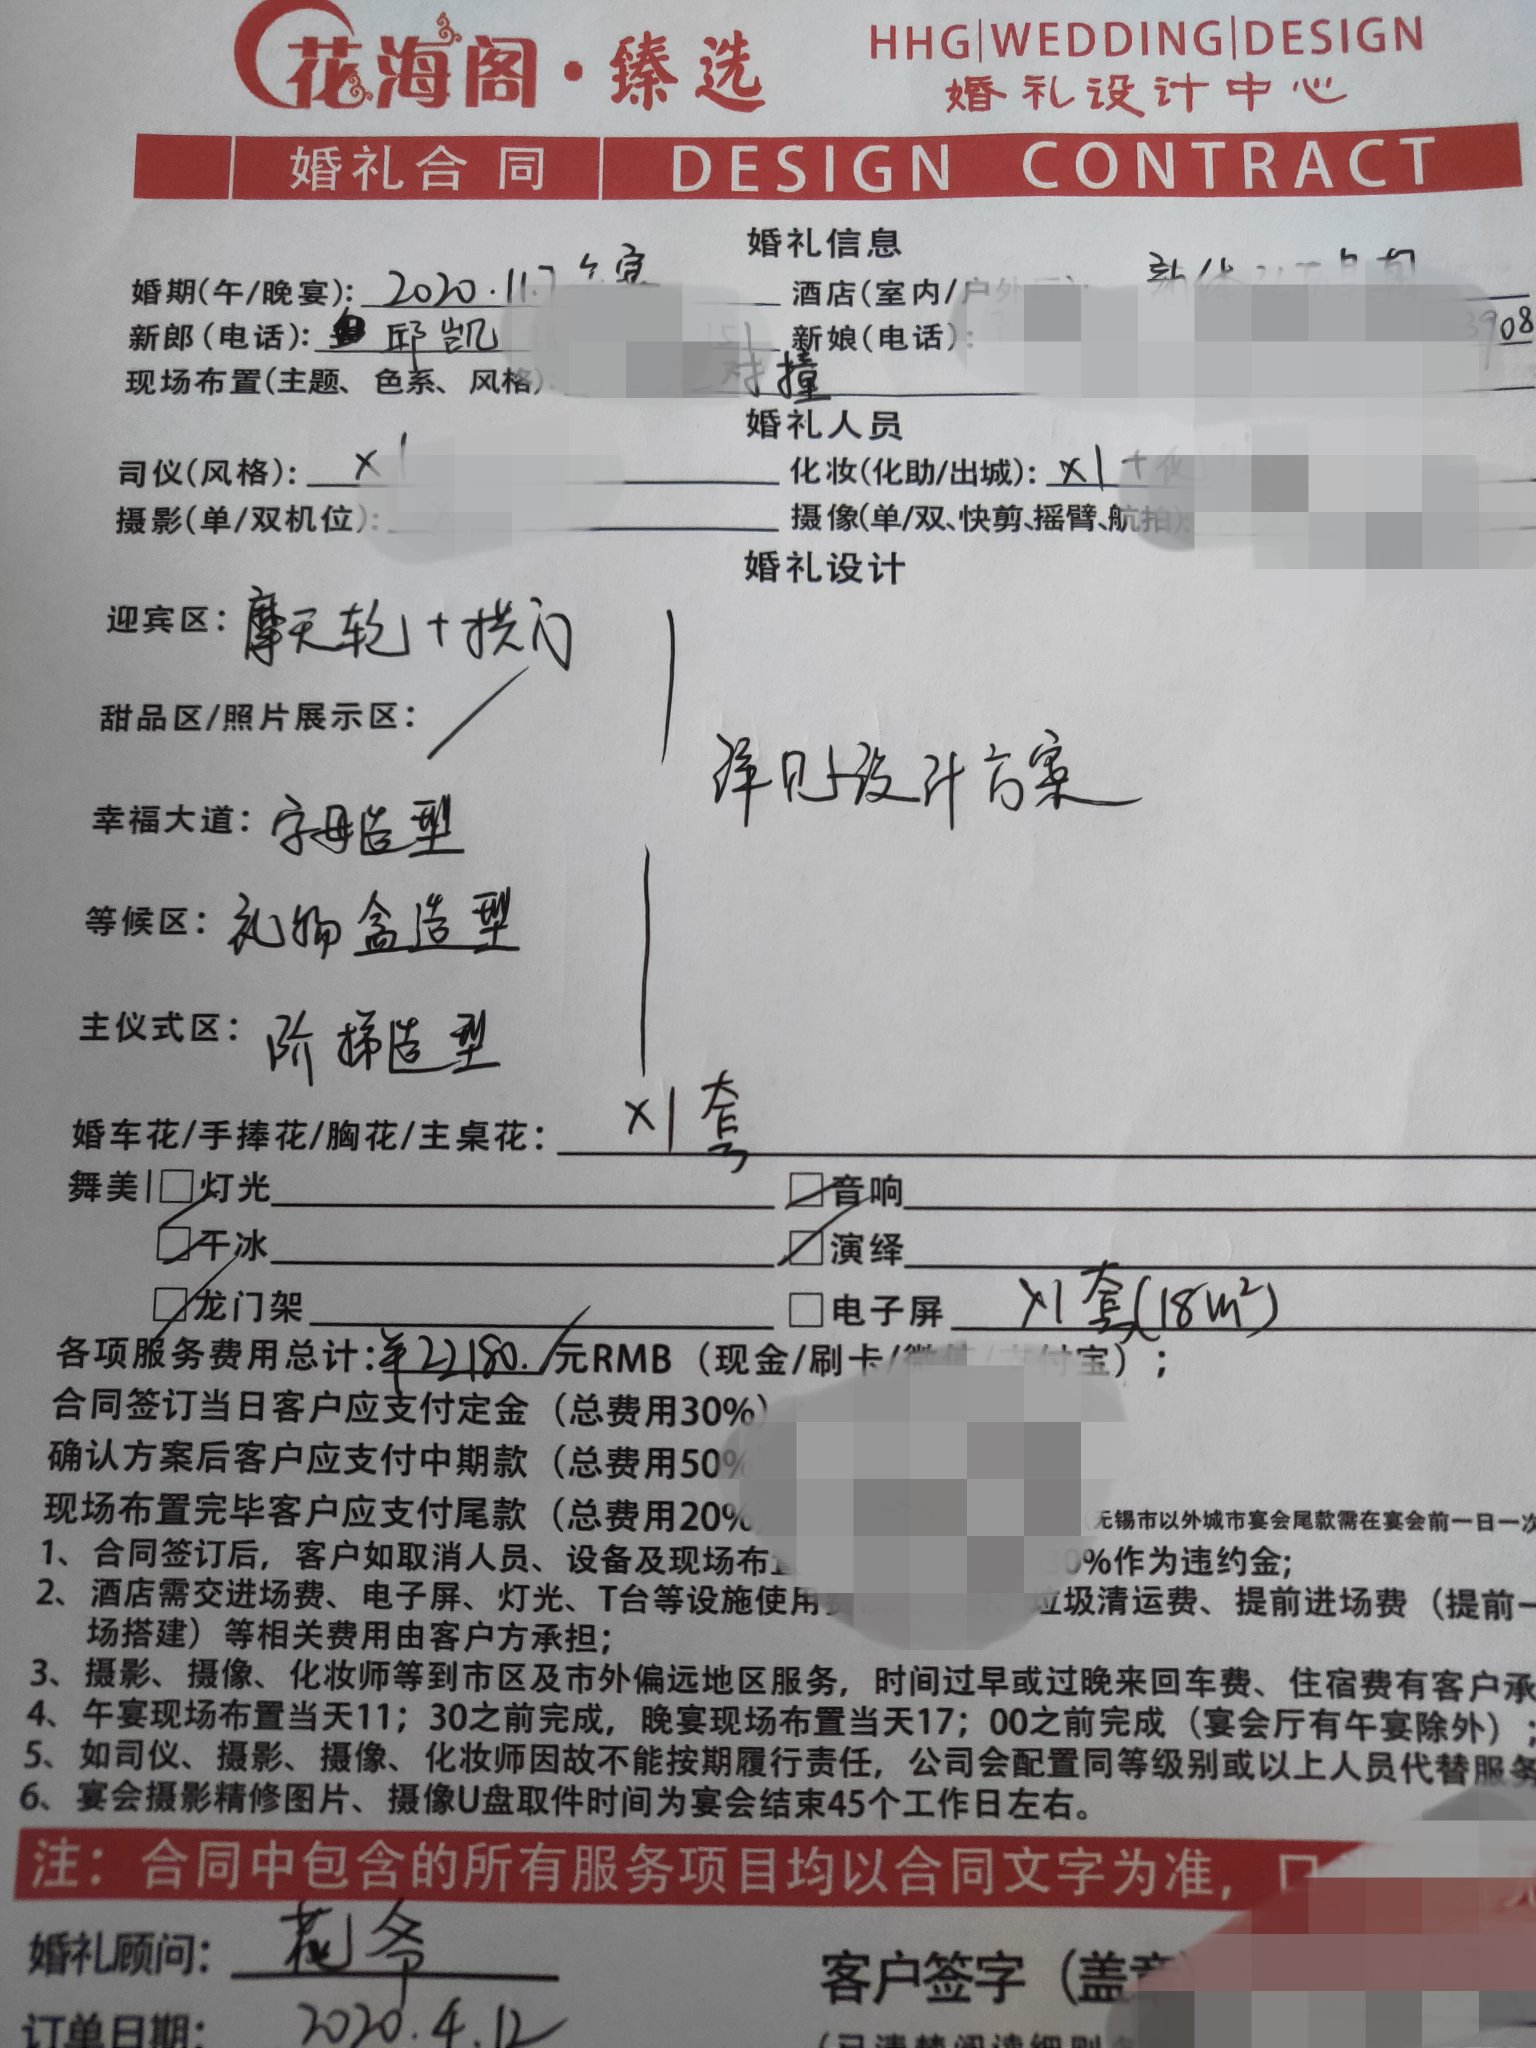 花海阁·臻选 HHG|WEDDING|DESIGN
婚礼设计中心
婚礼合同 DESIGN CONTRACT
婚礼信息
婚期(午/晚宴): 2020.11.7 酒店(室内/户外
新郎(电话): 邱凯 新娘(电话): 3908
现场布置(主题、色系、风格) 对撞
婚礼人员
司仪(风格): ×1 化妆(化助/出城): ×1+
摄影(单/双机位): 摄像(单/双、快剪、摇臂、航拍):
婚礼设计
迎宾区: 摩天轮+拱门
甜品区/照片展示区:
详见设计方案
幸福大道: 字母造型
等候区: 礼物盒造型
主仪式区: 阶梯造型
婚车花/手捧花/胸花/主桌花: ×1套
舞美|□灯光 □音响
□干冰 □演绎
□龙门架 □电子屏 ×1套(18m²)
各项服务费用总计:¥22180. 元RMB（现金/刷卡/微信/支付宝）;
合同签订当日客户应支付定金（总费用30%）
确认方案后客户应支付中期款（总费用50%
现场布置完毕客户应支付尾款（总费用20% （无锡市以外城市宴会尾款需在宴会前一日一次
1、合同签订后，客户如取消人员、设备及现场布置 30%作为违约金;
2、酒店需交进场费、电子屏、灯光、T台等设施使用费 垃圾清运费、提前进场费（提前一
场搭建）等相关费用由客户方承担;
3、摄影、摄像、化妆师等到市区及市外偏远地区服务，时间过早或过晚来回车费、住宿费有客户承
4、午宴现场布置当天11；30之前完成，晚宴现场布置当天17；00之前完成（宴会厅有午宴除外）;
5、如司仪、摄影、摄像、化妆师因故不能按期履行责任，公司会配置同等级别或以上人员代替服务
6、宴会摄影精修图片、摄像U盘取件时间为宴会结束45个工作日左右。
注：合同中包含的所有服务项目均以合同文字为准，口
婚礼顾问: 花爷 客户签字（盖章）
订单日期: 2020.4.12